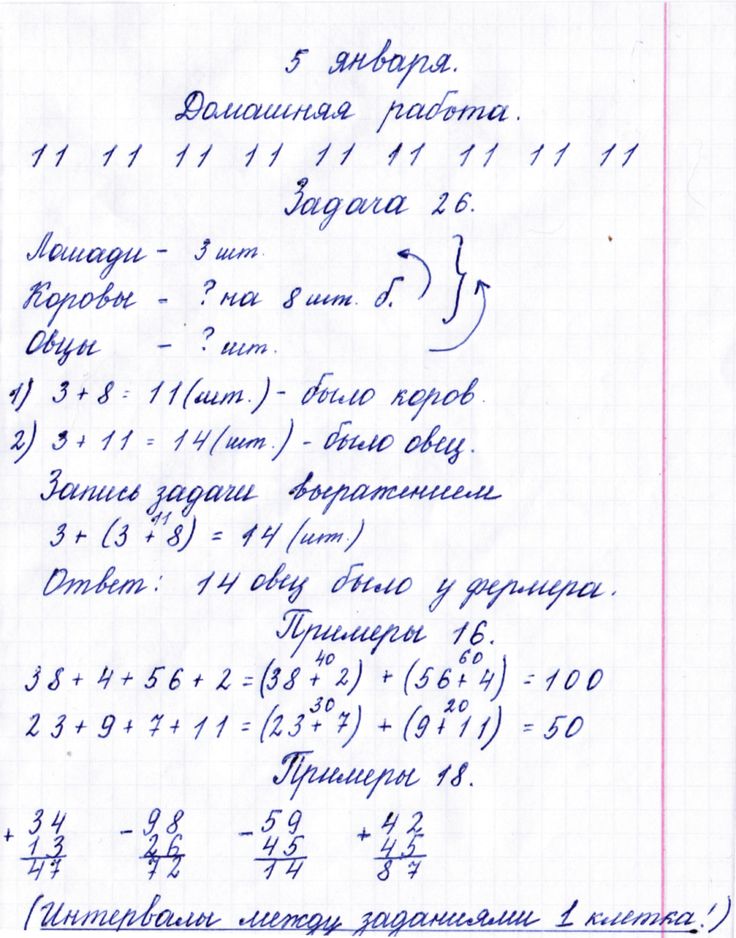 5 января.
Домашняя работа.
11 11 11 11 11 11 11 11 11
Задача 26.
Лошади - 3 шт.
Коровы - ? на 8 шт. б.
Овцы - ? шт.
1) 3 + 8 = 11 (шт.) - было коров.
2) 3 + 11 = 14 (шт.) - было овец.
Запись задачи выражением
11
3 + (3 + 8) = 14 (шт.)
Ответ: 14 овец было у фермера.
Примеры 16.
40 60
38 + 4 + 56 + 2 = (38 + 2) + (56 + 4) = 100
30 20
23 + 9 + 7 + 11 = (23 + 7) + (9 + 11) = 50
Примеры 18.
+ 34 - 98 - 59 + 42
13 26 45 45
47 72 14 87
(Интервалы между заданиями 1 клетка!)